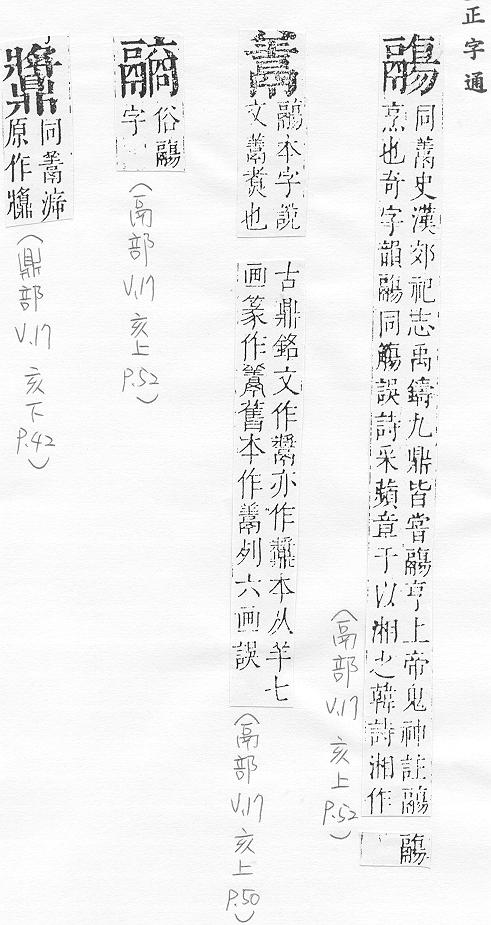 正字通
鬺
同䰞史漢郊祀志禹鑄九鼎皆嘗鬺亨上帝鬼神註鬺
烹也奇字韻鬺同觴誤詩采蘋章于以湘之韓詩湘作
鬺
(鬲部 V.17 亥上 P.52)
䰞
鬺本字說
文䰞煑也
古鼎銘文作亦作本从羊七
画篆作舊本作列六画誤
(鬲部 V.17 亥上 P.50)
俗鬺
字
(鬲部 V.17 亥上 P.52)
同䰞
原作
(鼎部 V.17 亥下 P.42)